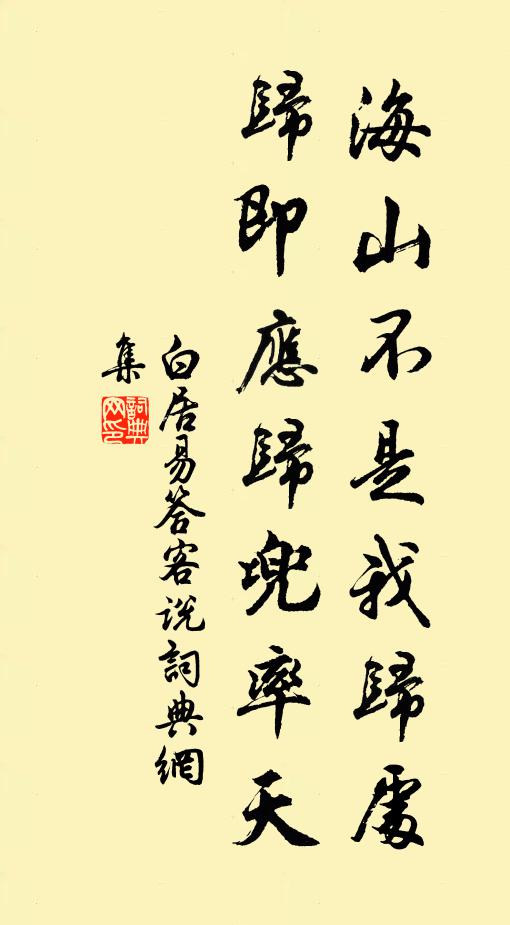 海山不是我歸處
歸即應歸兜率天
白居易答客说詞典網
集
詞典網印